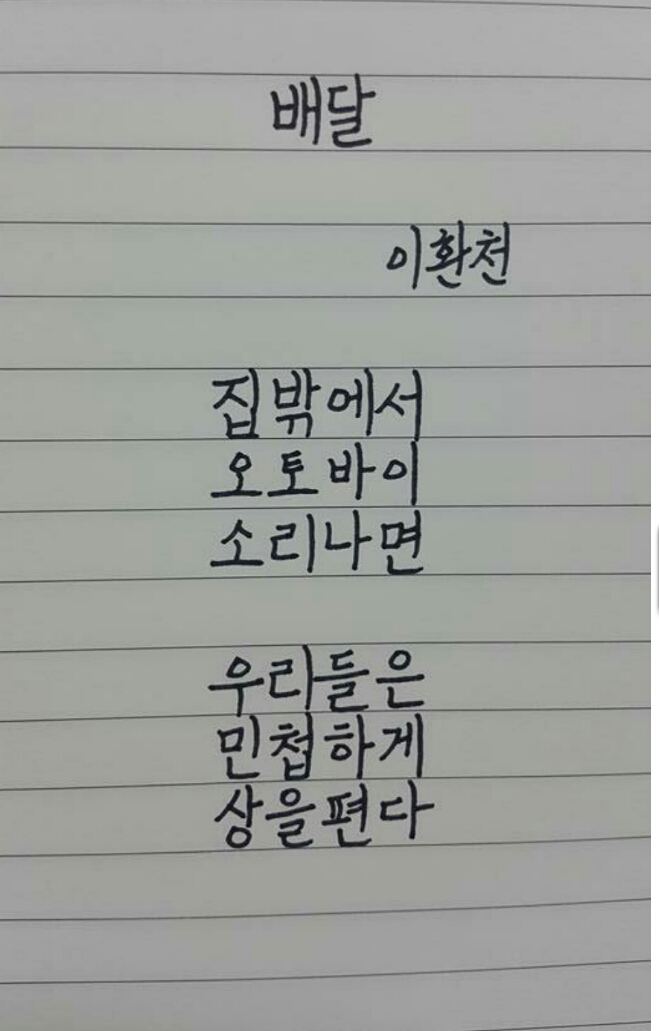 배달
이환천
집밖에서
오토바이
소리나면
우리들은
민첩하게
상을편다